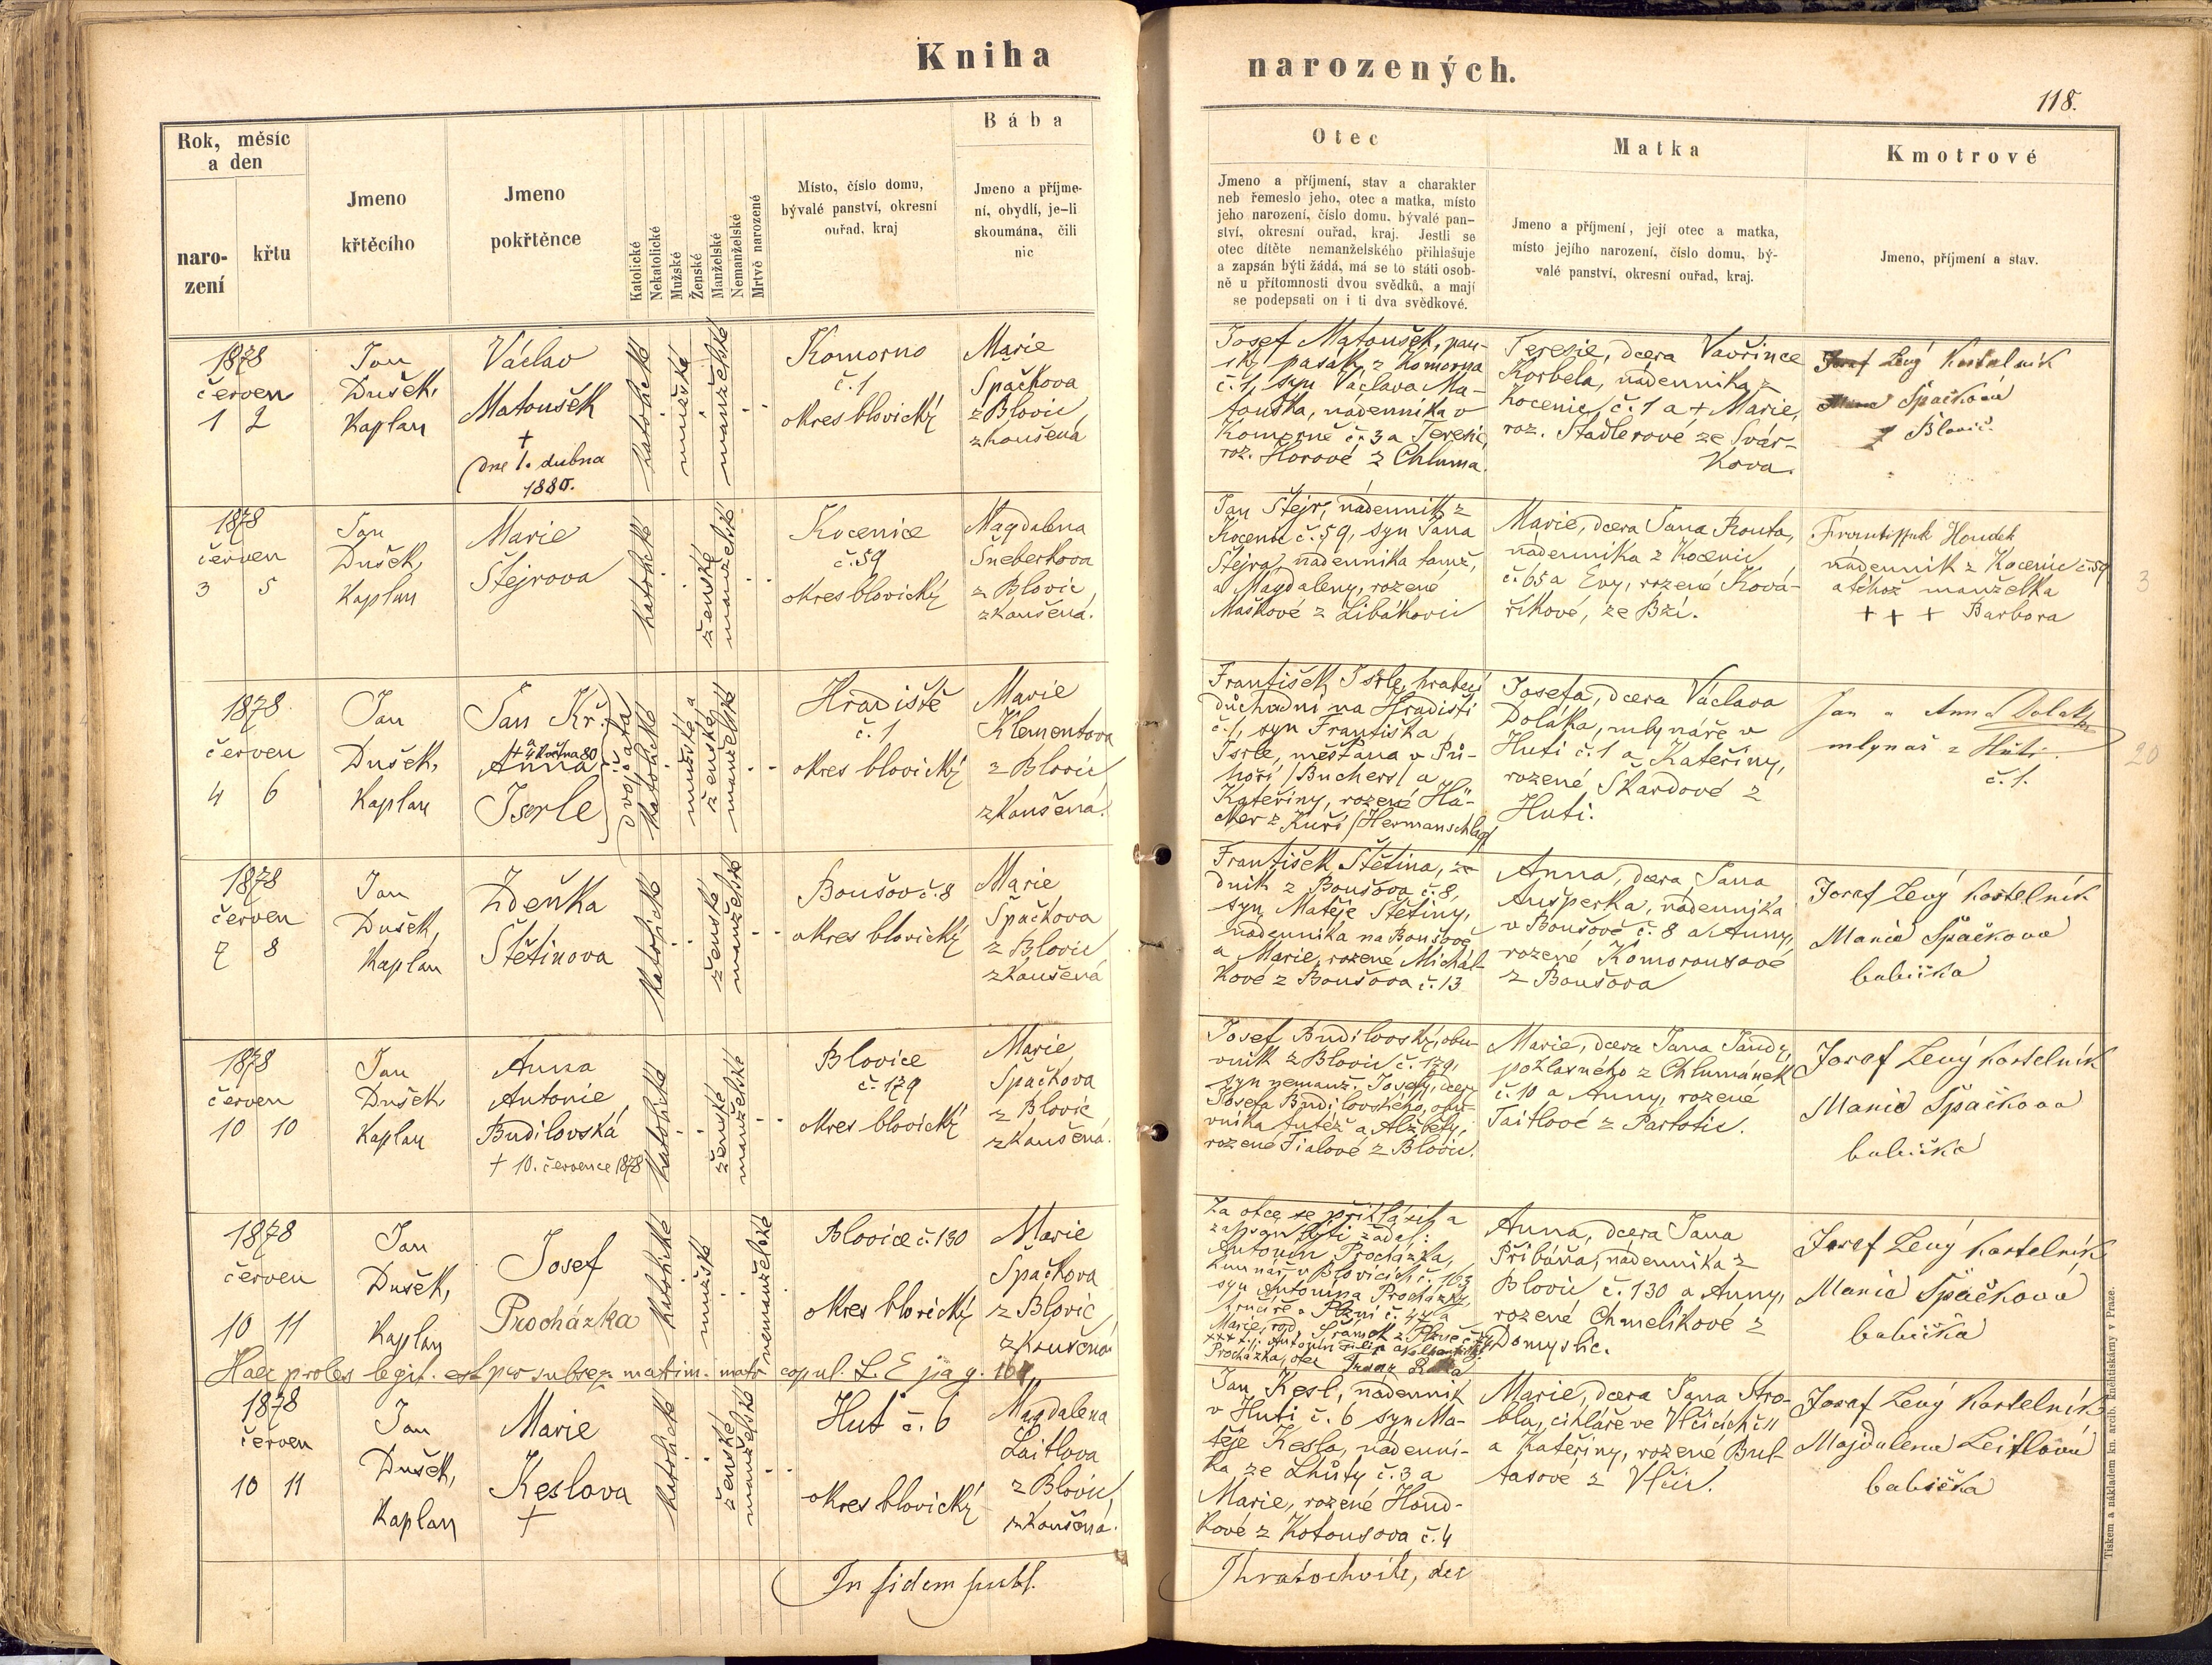 Kniha narozených.
118.
Rok, měsíc
a den
naro-
zení
křtu
Jmeno
křtěcího
Jmeno
pokřtěnce
Katolické
Nekatolické
Mužské
Ženské
Manželské
Nemanželské
Mrtvě narozené
Místo, číslo domu,
bývalé panství, okresní
ouřad, kraj
Bába
Jmeno a příjme-
ní, obydlí, je-li
skoumána, čili
nic
Otec
Jmeno a příjmení, stav a charakter
neb řemeslo jeho, otec a matka, místo
jeho narození, číslo domu, bývalé pan-
ství, okresní ouřad, kraj. Jestli se
otec dítěte nemanželského přihlašuje
a zapsán býti žádá, má se to státi osob-
ně u přítomnosti dvou svědků, a mají
se podepsati on i ti dva svědkové.
Matka
Jmeno a příjmení, její otec a matka,
místo jejího narození, číslo domu, bý-
valé panství, okresní ouřad, kraj.
Kmotrové
Jmeno, příjmení a stav.
1878
červen
1 2
Jan
Dušek,
Kaplan
Václav
Matoušek
+
dne 1. dubna
1880.
katolické
mužské
manželské
Komorno
č. 1
okres blovický
Marie
Špačkova
z Blovic
zkoušená
Josef Matoušek, pan-
ský pasák z Komorna
č. 1, syn Václava Ma-
touška, nádenníka v
Komorně č. 3 a Terezie,
roz. Horové z Chluma.
Terezie, dcera Vavřince
Korbela, nádenníka z
Kocenic č. 1 a + Marie,
roz. Stadlerové ze Svár-
kova.
Josef Levý Kostelník
Marie Špačková
z Blovic
1878
červen
3 5
Jan
Dušek,
Kaplan
Marie
Štejrova
katolické
ženské
manželské
Kocenice
č. 59
okres blovický
Magdalena
Šneberkova
z Blovic
zkoušená.
Jan Štejr, nádenník z
Kocenic č. 59, syn Jana
Štejra, nádenníka tamž,
a Magdaleny, rozené
Maškové z Libákovic
Marie, dcera Jana Routa,
nádenníka z Kocenic
č. 65 a Evy, rozené Ková-
říkové, ze Bzí.
Houdek
nádenník z Kocenic č. 59
a téhož manželka
+ + + Barbora
3
1878
červen
4 6
Jan
Dušek,
Kaplan
Jan Kř.
a
+ 4 května 80
Anna
Iserle
dvojčata
katolické
mužské a
ženské
manželské
Hradiště
č. 1
okres blovický
Marie
Klementova
z Blovic
zkoušená.
František Isrle, hraběcí
důchodní na Hradišti
č. 1, syn Františka
Isrle, měšťana v Pů-
hoří /Buchers/ a
Kateřiny, rozené
z Kuří /Hermanschlag/
Josefa, dcera Václava
Doláka, mlynáře v
Huti č. 1 a Kateřiny,
rozené Skardové z
Huti.
Jan a Anna Dolák
mlynář z Hůti
č. 1.
20
1878
červen
7 8
Jan
Dušek,
Kaplan
Zdeňka
Štětinova
katolické
ženské
manželské
Boušov č. 8
okres blovický
Marie
Špačkova
z Blovic
zkoušená
František Štětina, ze-
dník z Boušova č. 8,
syn Matěje Štětiny,
nádenníka na Boušově
a Marie, rozené Michál-
kové z Boušova č. 13
Anna, dcera Jana
Aušperka, nádenníka
v Boušově č. 8 a Anny,
rozené Komorousové
z Boušova
Josef Levý kostelník
Marie Špačkova
babička
1878
červen
10 10
Jan
Dušek
Kaplan
Anna
Antonie
Budilovská
+ 10. července 1878
katolické
ženské
manželské
Blovice
č. 179
okres blovický
Marie
Špačkova
z Blovic
zkoušená.
Josef Budilovský, obu-
vník z Blovic č. 179,
syn nemanž. Josefy, dcery
Josefa Budilovského, obu-
vníka tutéž a Alžběty,
rozené Fialové z Blovic.
Marie, dcera Jana Jandy,
pohlasného z Chlumánek
č. 10 a Anny, rozené
Taitlové z Partotic.
Josef Levý kostelník
Marie Špačkova
babička
1878
červen
10 11
Jan
Dušek,
Kaplan
Josef
Procházka
katolické
mužské
nemanželské
Blovice č. 130
okres blovický
Marie
Špačkova
z Blovic
zkoušená
Za otce se přihlásil a
zapsán býti žádal:
Antonín Procházka,
v Blovicích č. 163
syn Antonína Procházky,
v Plzni č. 47 a
Marie, rod. Šrámek z
Procházka, otec
Anna, dcera Jana
Přibáňa, nádenníka z
Blovic č. 130 a Anny,
rozené Chmelíkové z
Domyslic.
Josef Levý kostelník
Marie Špačkova
babička
Haec proles legit. est per subseq. matrim. copul. L. E pag. 161
1878
červen
10 11
Jan
Dušek,
Kaplan
Marie
Keslova
+
katolické
ženské
manželské
Huť č. 6
okres blovický
Magdalena
Laitlova
z Blovic
zkoušená.
Jan Kesl, nádenník
v Huti č. 6 syn Ma-
těje Kesla, nádenní-
ka ze Lhůty č. 3 a
Marie, rozené Houd-
kové z Kotousova č. 4
Marie, dcera Jana Stro-
bla, cihláře ve Vlčicích č. 11
a Kateřiny, rozené Bul-
tasové z Vlčic.
Josef Levý kostelník
Majdalena Leitlová
babička
In fidem publ.
děk
Tiskem a nákladem kn. arcib. knihtiskárny v Praze.